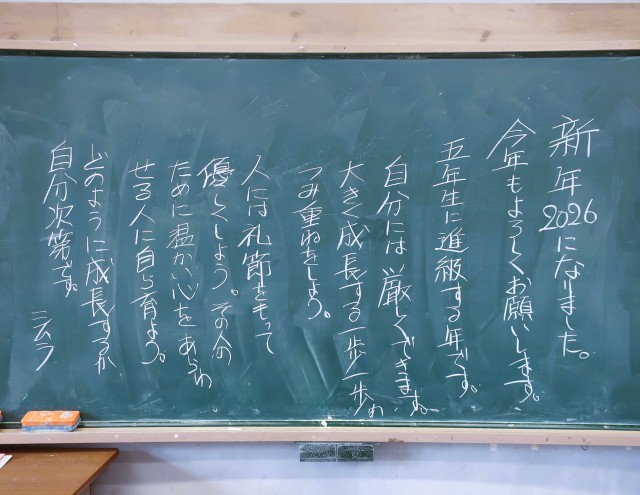 新年2026になりました。
今年もよろしくお願いします。
五年生に進級する年です。
自分には厳しくできます。
大きく成長する一歩一歩の
つみ重ねをしよう。
人には礼節をもって
優しくしよう。その人の
ために温かい心をあらわ
せる人に自ら育よう。
どのように成長するか
自分次第です。
ミスラ